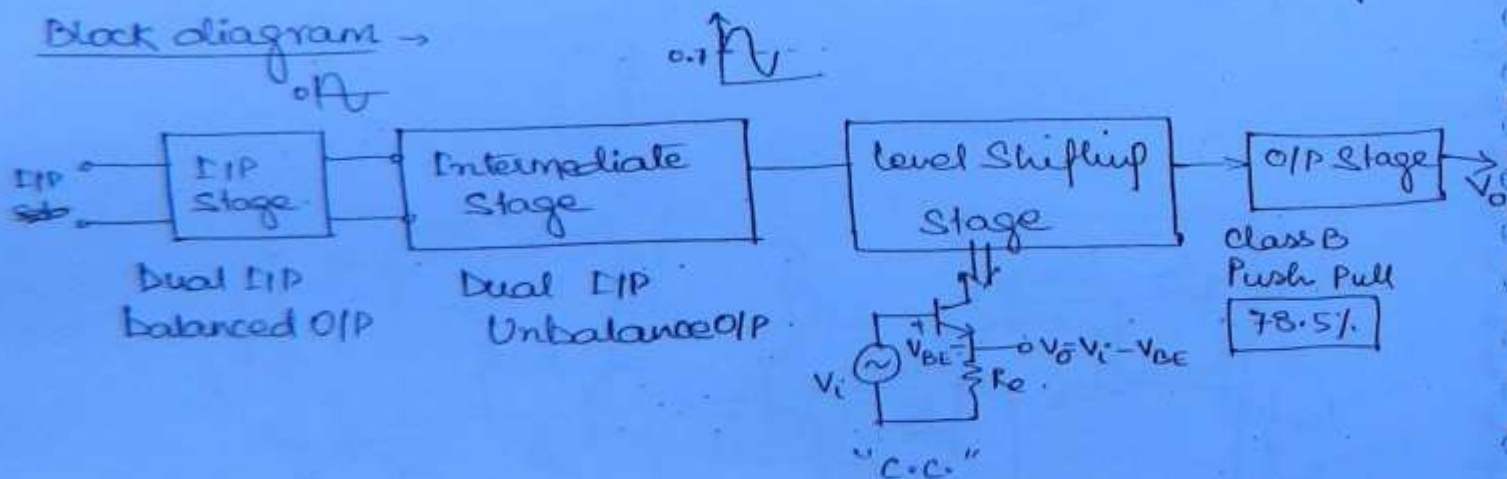 Block diagram →
0
0.7
I/P
I/P Stage
Intermediate Stage
Level Shifting Stage
O/P Stage
Vo
Dual I/P
balanced O/P
Dual I/P
Unbalance O/P.
Class B
Push Pull
78.5%
Vi
+
VBE
-
Vo = Vi - VBE
Re.
"C.C."